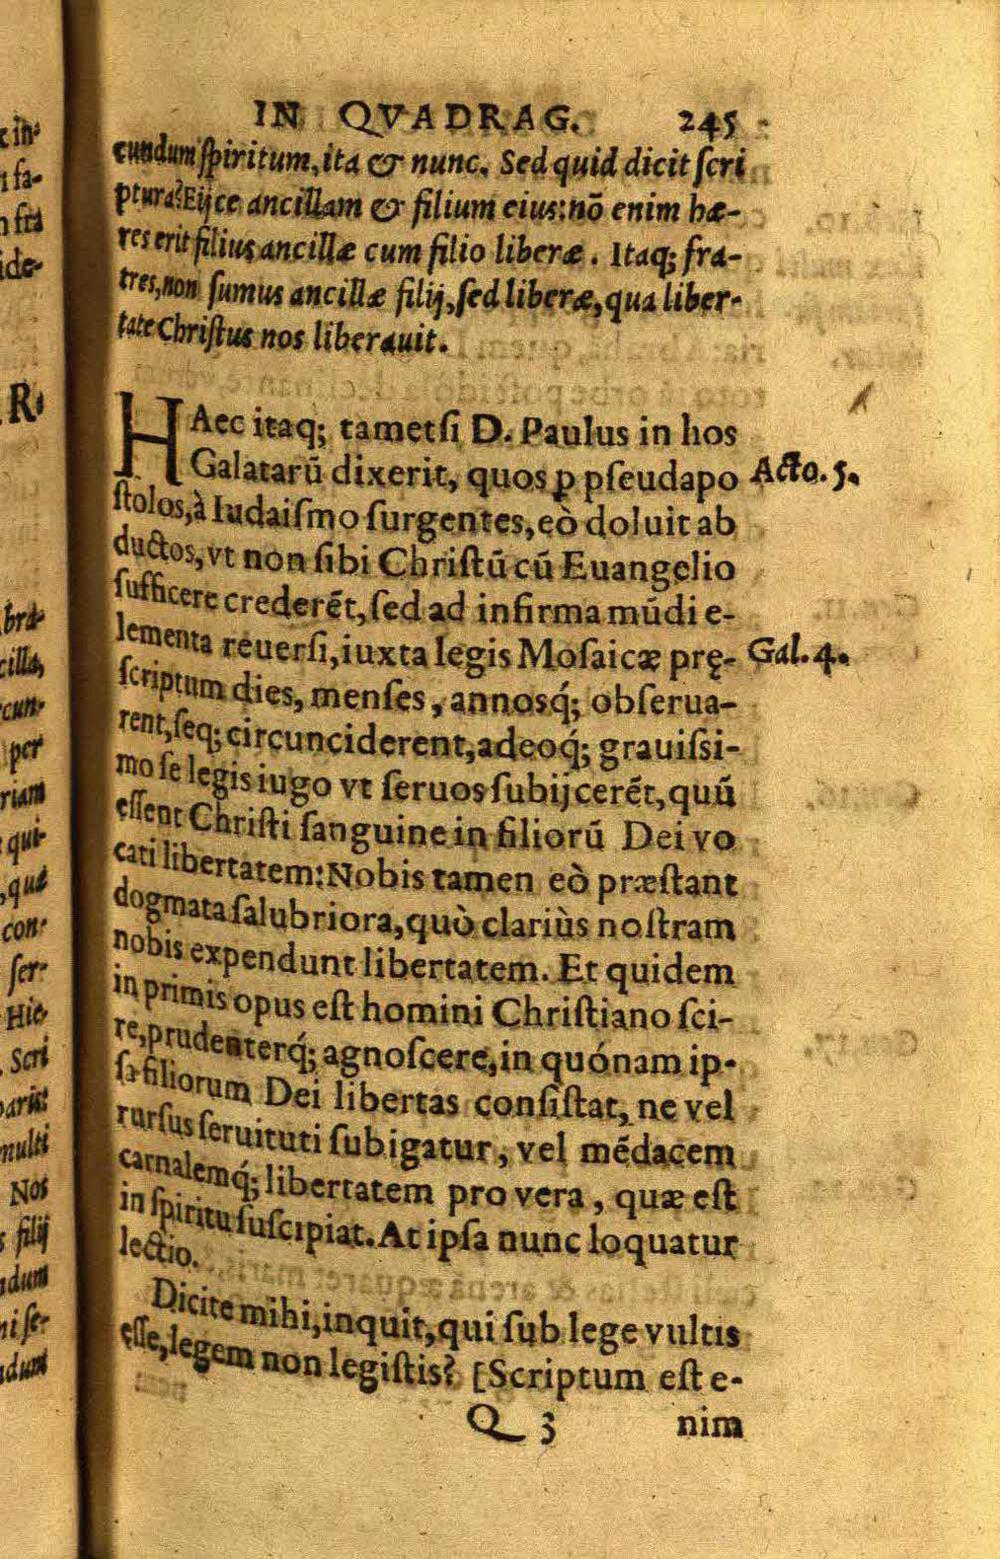 IN QVADRAG. 245
cundum ſpiritum, ita & nunc. Sed quid dicit ſcri
ptura? Eijce ancillam & filium eius: nō enim hæ-
res erit filius ancillæ cum filio liberæ. Itaq; fra-
tres, non ſumus ancillæ filij, ſed liberæ, qua liber-
tate Chriſtus nos liberauit.
HAec itaq; tametſi D. Paulus in hos
Galatarū dixerit, quos ꝑ pſeudapo
Acto. 5.
ſtolos, à Iudaiſmo ſurgentes, eò doluit ab
ductos, vt non ſibi Chriſtū cū Euangelio
ſufficere crederēt, ſed ad infirma mūdi e-
lementa reuerſi, iuxta legis Moſaicæ prę-
Gal. 4.
ſcriptum dies, menſes, annosq́; obſerua-
rent, ſeq; circunciderent, adeoq́; grauiſsi-
mo ſe legis iugo vt ſeruos ſubijcerēt, quū
eſſent Chriſti ſanguine in filiorū Dei vo
cati libertatem: Nobis tamen eò præſtant
dogmata ſalubriora, quò clariùs noſtram
nobis expendunt libertatem. Et quidem
in primis opus eſt homini Chriſtiano ſci-
re, prudenterq́; agnoſcere, in quónam ip-
ſa filiorum Dei libertas conſiſtat, ne vel
rurſus ſeruituti ſubigatur, vel mēdacem
carnalemq́; libertatem pro vera, quæ eſt
in ſpiritu ſuſcipiat. At ipſa nunc loquatur
lectio.
Dicite mihi, inquit, qui ſub lege vultis
eſſe, legem non legiſtis? [Scriptum eſt e-
Q 3 nim